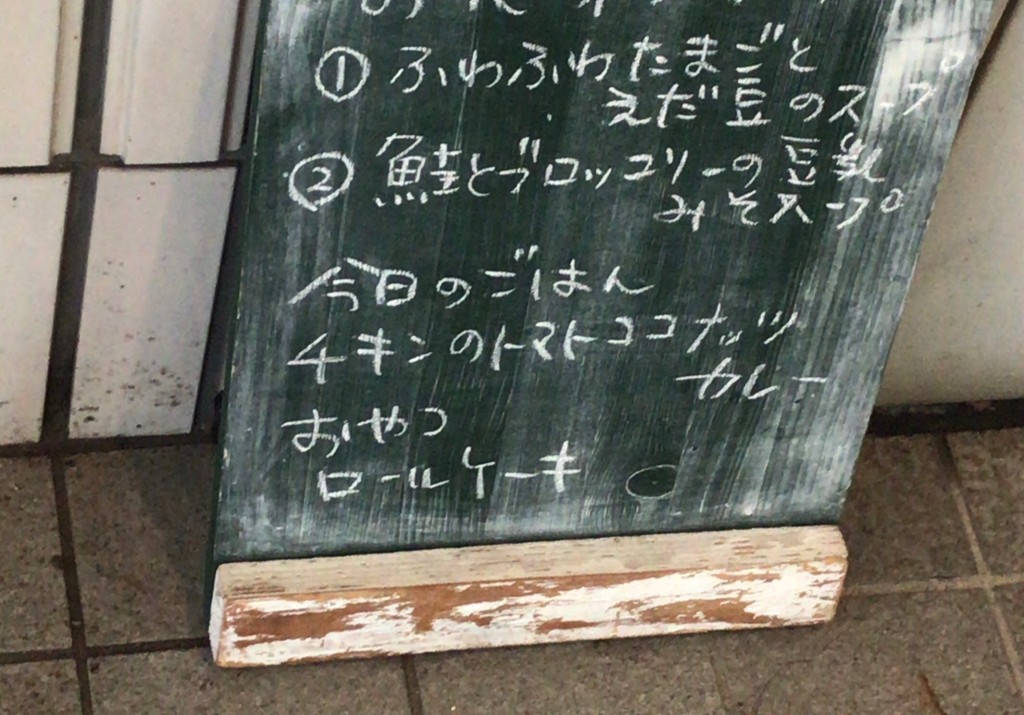 ① ふわふわたまごと
えだ豆のスープ
② 鮭とブロッコリーの豆乳
みそスープ
今日のごはん
チキンのトマトココナッツ
カレー
おやつ
ロールケーキ